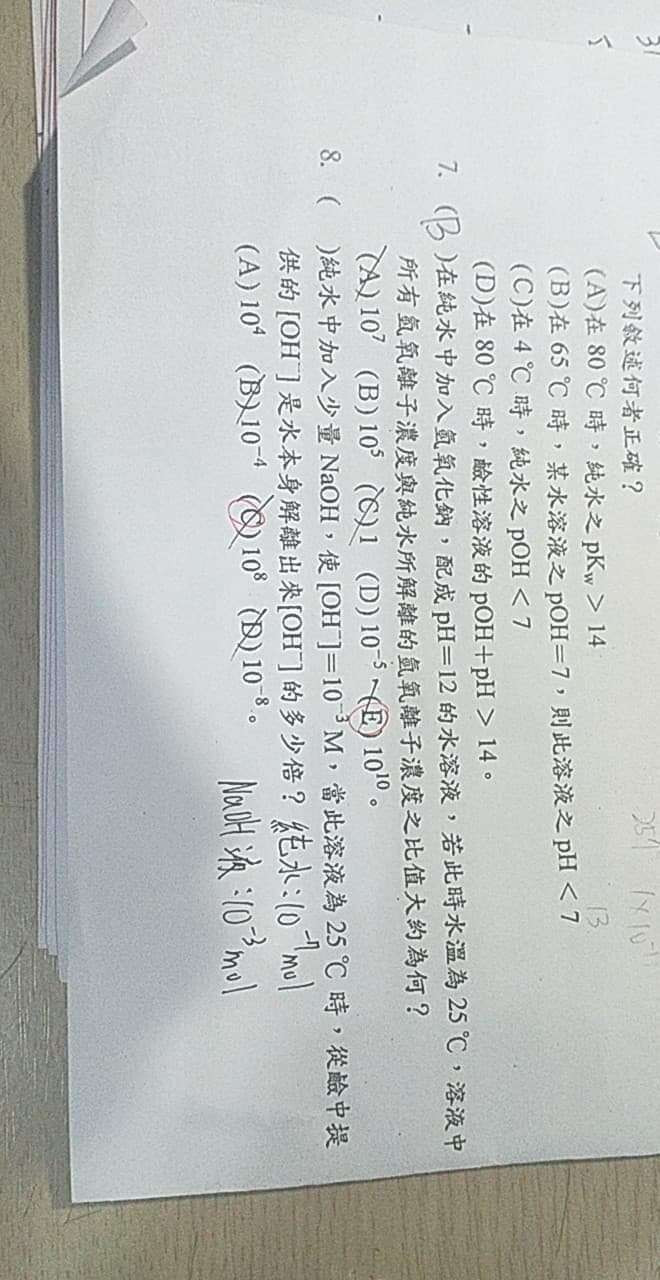 下列敘述何者正確？
(A)在 80℃ 時，純水之 pKw > 14
(B)在 65℃ 時，某水溶液之 pOH=7，則此溶液之 pH < 7
(C)在 4℃ 時，純水之 pOH < 7
(D)在 80℃ 時，鹼性溶液的 pOH+pH > 14。
7. (B)在純水中加入氫氧化鈉，配成 pH=12 的水溶液，若此時水溫為 25℃，溶液中
所有氫氧離子濃度與純水所解離的氫氧離子濃度之比值大約為何？
(A) 10⁷ (B) 10⁵ (C) 1 (D) 10⁻⁵、(E) 10¹⁰。
8. ( )純水中加入少量 NaOH，使 [OH⁻]=10⁻³ M，當此溶液為 25℃ 時，從鹼中提
供的 [OH⁻] 是水本身解離出來[OH⁻] 的多少倍？ 純水：10⁻⁷ mol
(A) 10⁴ (B) 10⁻⁴ (C) 10⁸ (D) 10⁻⁸。 NaOH 液：10⁻³ mol
13